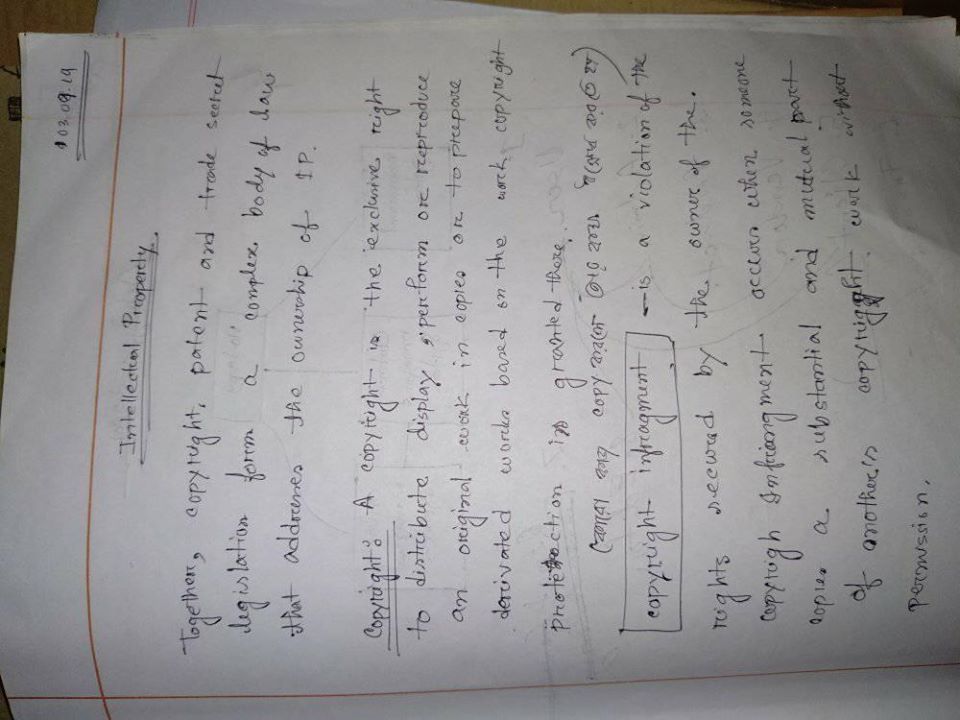 03.09.19
Intellectual Property.
Together, copyright, patent and trade secret
legislation form a complex body of law
that addresses the ownership of IP.
Copyright: A copyright is the exclusive right
to distribute display, perform or reproduce
an original work in copies or to prepare
derivated works based on the work copyright
protection is granted there.
copy করলে
copyright infragment - is a violation of the
rights secured by the owner of the.
copyrigh Infriangment occurs when someone
copies a substantial and mutual part
of another's copyright work without
permission.